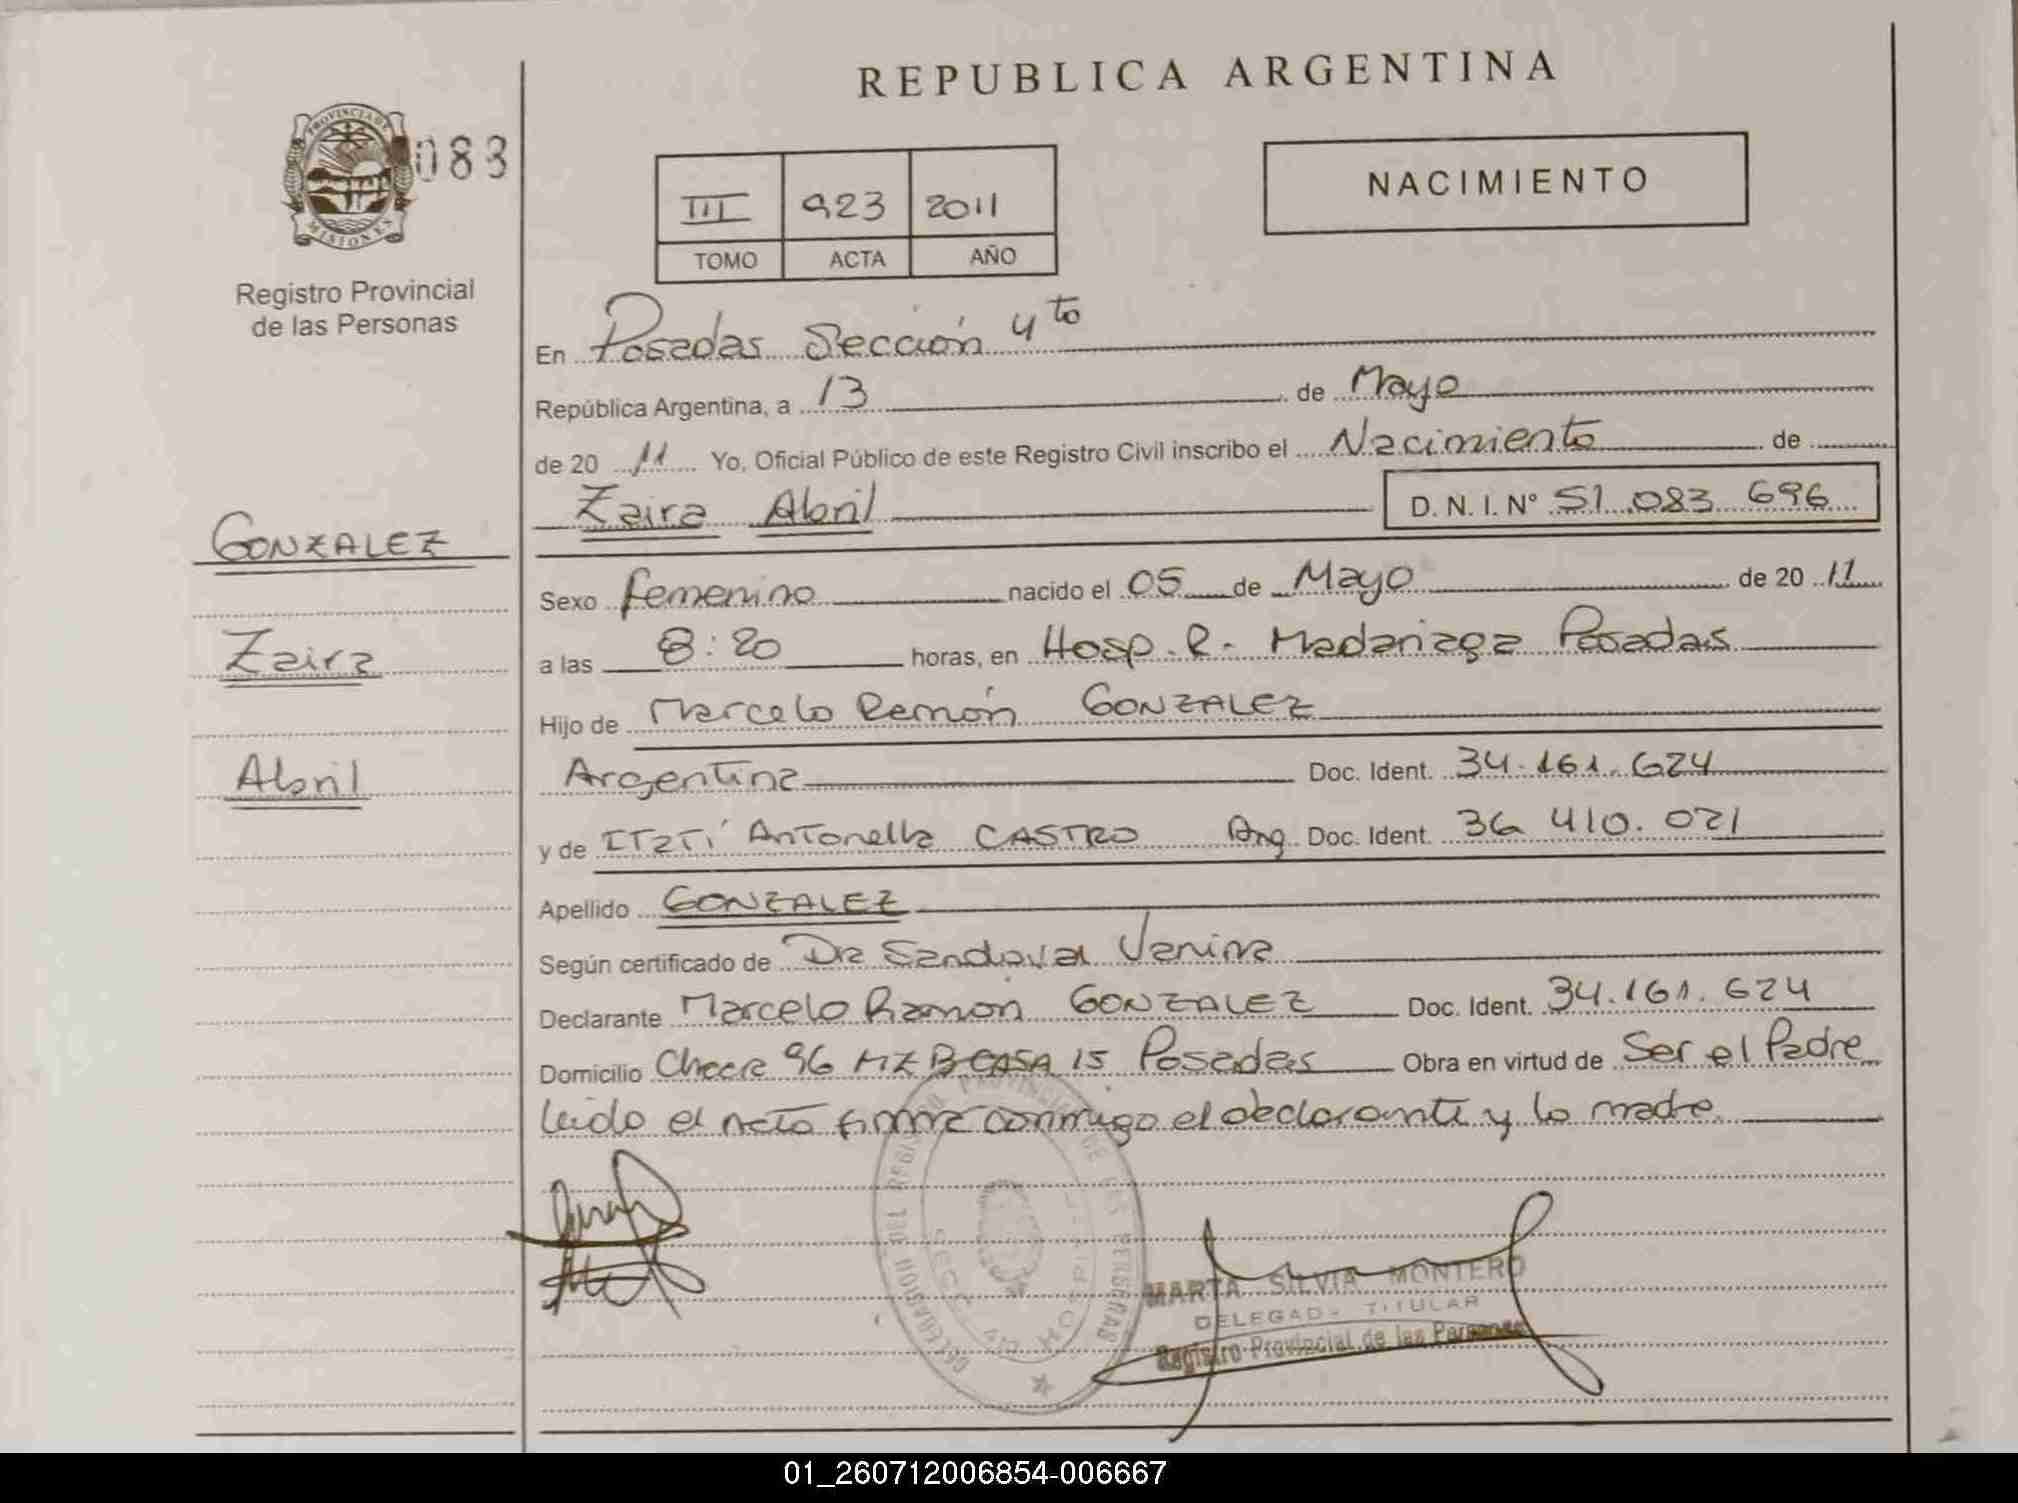 REPUBLICA ARGENTINA
PROVINCIA DE MISIONES
083
Registro Provincial
de las Personas
III 923 2011
TOMO ACTA AÑO
NACIMIENTO
En Posadas Sección 4to
República Argentina, a 13 de Mayo
de 20 11 Yo, Oficial Público de este Registro Civil inscribo el Nacimiento de
Zaira Abril D. N. I. Nº 51.083 696
GONZALEZ
Zaira
Abril
Sexo femenino nacido el 05 de Mayo de 20 11
a las 8:20 horas, en Hosp. R. Madariaga Posadas
Hijo de Marcelo Ramón GONZALEZ
Argentina Doc. Ident. 34.161.624
y de ITATÍ Antonella CASTRO Arg Doc. Ident. 36 410.021
Apellido GONZALEZ
Según certificado de Dra Sandoval Vanina
Declarante Marcelo Ramón GONZALEZ Doc. Ident. 34.161.624
Domicilio 96 MZ B CASA 15 Posadas Obra en virtud de Ser el Padre
leido el acta firma conmigo el declarante y la madre
DELEGACION DEL REGISTRO PROVINCIAL DE LAS PERSONAS
SECC 4ta HOSPITAL
MARTA SILVIA MONTERO
DELEGADA TITULAR
Registro Provincial de las Personas
01_260712006854-006667